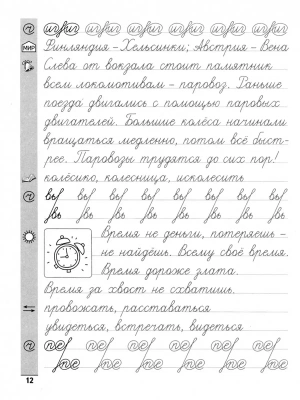 Финляндия – Хельсинки; Австрия – Вена
Слева от вокзала стоит памятник
всем локомотивам – паровоз. Раньше
поезда двигались с помощью паровых
двигателей. Большие колёса начинали
вращаться медленно, потом всё быст-
рее. Паровозы трудятся до сих пор!
колёсико, колесница, исколесить
Время не деньги, потеряешь –
не найдёшь. Всему своё время.
Время дороже злата.
Время за хвост не схватишь.
провожать, расставаться
увидеться, встречать, видеться
МИР
12